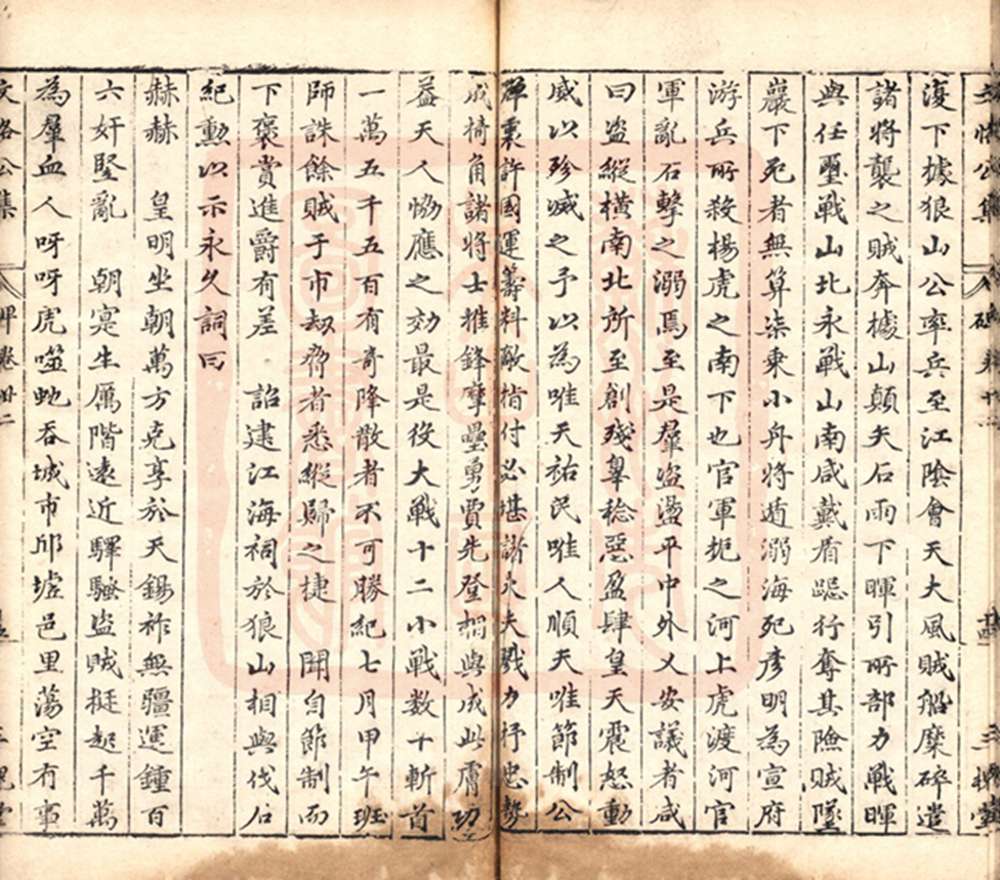 復下據狼山公率兵至江陰會天大風賊船糜碎遣
諸將襲之賊奔據山顛矢石雨下暉引所部力戰暉
與任璽戰山北永戰山南咸戴盾跽行奪其險賊墜
巖下死者無算柒東小舟將遁溺海死彥明為宣府
游兵所殺楊虎之南下也官軍扼之河上虎渡河官
軍亂石擊之溺焉至是羣盜盪平中外乂安議者咸
曰盜縱橫南北所至創殘辠稔惡盈肆皇天震怒動
威以殄滅之予以為唯天祐民唯人順天唯節制公
許國運籌料敵指付必堪諸大夫戮力抒忠
成犄角諸將士摧鋒摩壘勇賈先登相與成此膚功
益天人恊應之効最是役大戰十二小戰數十斬首
一萬五千五百有奇降散者不可勝紀七月甲午班
師誅餘賊于市刧脅者悉縱歸之捷聞自節制而
下褒賞進爵有差 詔建江海祠於狼山相與伐石
紀勳以示永久詞曰
赫赫 皇明坐朝萬方克享於天錫祚無疆運鍾百
六奸堅亂 朝寔生厲階遠近驛騷盜賊挺起千萬
為羣血人呀呀虎噬虵吞城市邱墟邑里蕩空有事
公集 卷